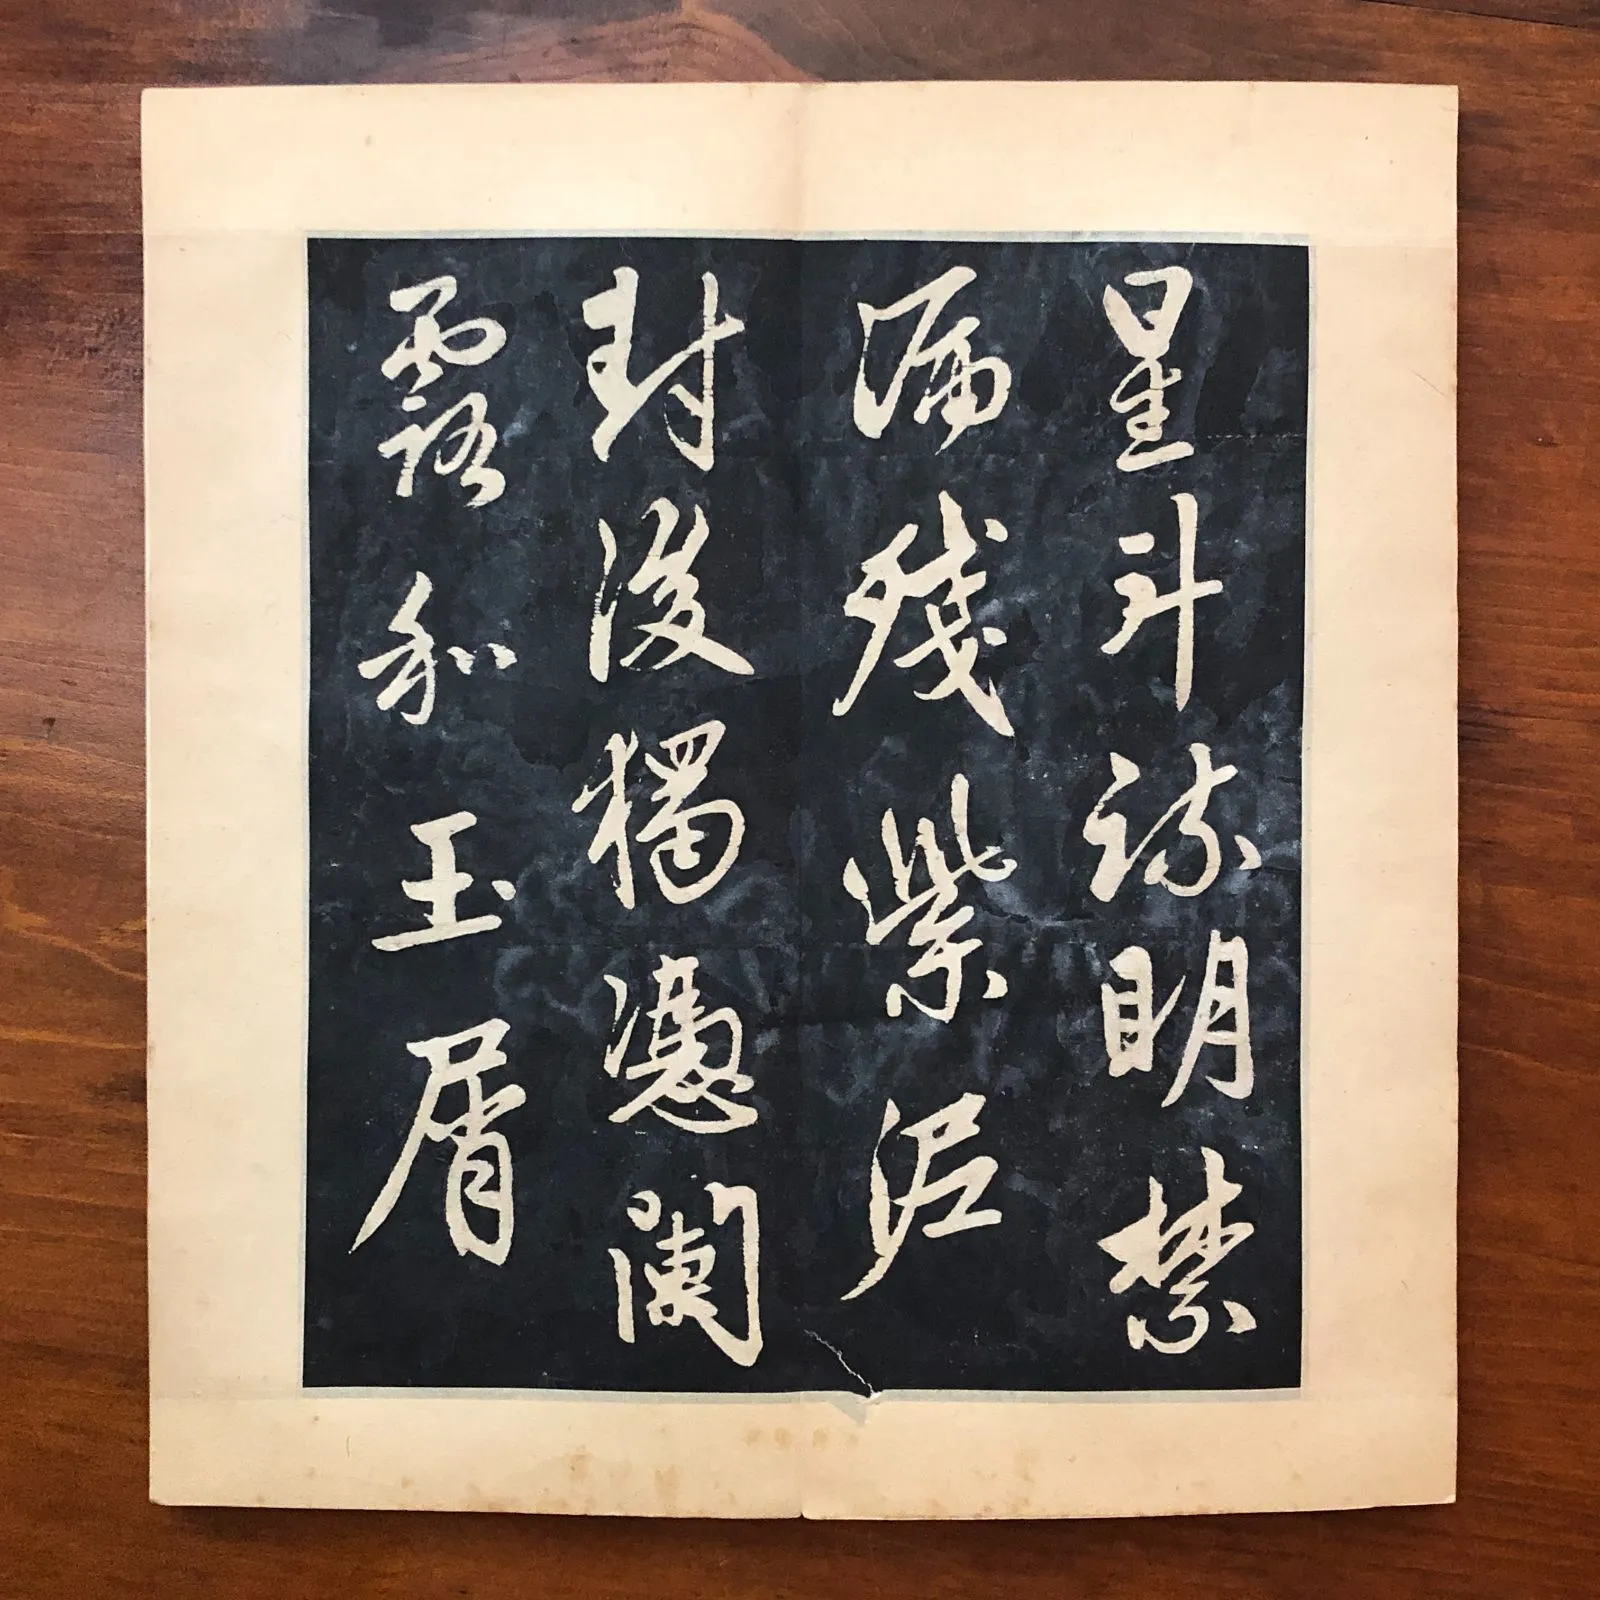 星斗疏明禁
漏残紫泥
封後獨憑闌
露和玉屑